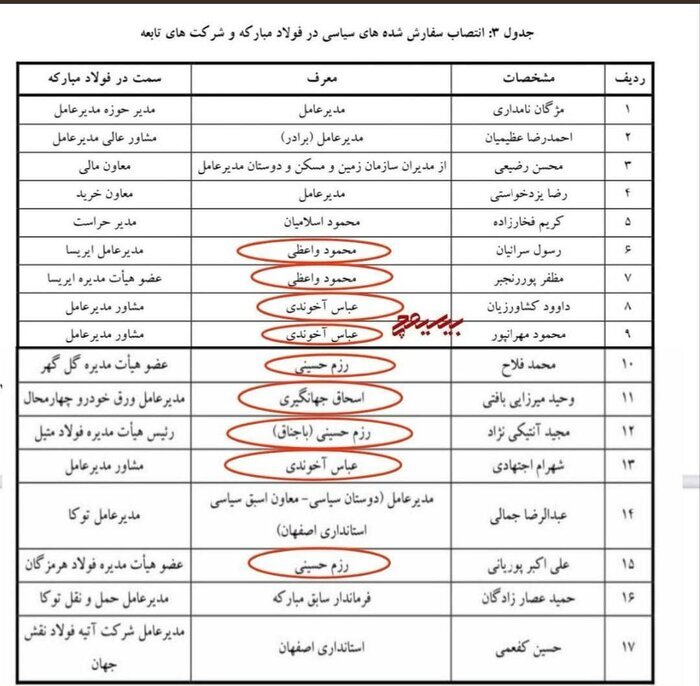 جدول ۳: انتصاب سفارش شده های سیاسی در فولاد مبارکه و شرکت های تابعه
ردیف مشخصات معرف سمت در فولاد مبارکه
۱ مژگان نامداری مدیرعامل مدیر حوزه مدیرعامل
۲ احمدرضا عظیمیان مدیرعامل (برادر) مشاور عالی مدیرعامل
۳ محسن رضیعی از مدیران سازمان زمین و مسکن و دوستان مدیرعامل معاون مالی
۴ رضا یزدخواستی مدیرعامل معاون خرید
۵ کریم فخارزاده محمود اسلامیان مدیر حراست
۶ رسول سرائیان محمود واعظی مدیرعامل ایریسا
۷ مظفر پوررنجبر محمود واعظی عضو هیأت مدیره ایریسا
۸ داوود کشاورزیان عباس آخوندی مشاور مدیرعامل
۹ محمود مهرانپور عباس آخوندی مشاور مدیرعامل
۱۰ محمد فلاح رزم حسینی عضو هیأت مدیره گل گهر
۱۱ وحید میرزایی بافتی اسحاق جهانگیری مدیرعامل ورق خودرو چهارمحال
۱۲ مجید آنتیکی نژاد رزم حسینی (باجناق) رئیس هیأت مدیره فولاد متیل
۱۳ شهرام اجتهادی عباس آخوندی مشاور مدیرعامل
۱۴ عبدالرضا جمالی مدیرعامل (دوستان سیاسی- معاون اسبق سیاسی
استانداری اصفهان) مدیرعامل توکا
۱۵ علی اکبر پوریانی رزم حسینی عضو هیأت مدیره فولاد هرمزگان
۱۶ حمید عصار زادگان فرماندار سابق مبارکه مدیرعامل حمل و نقل توکا
۱۷ حسین کفعمی استانداری اصفهان مدیرعامل شرکت آتیه فولاد نقش
جهان